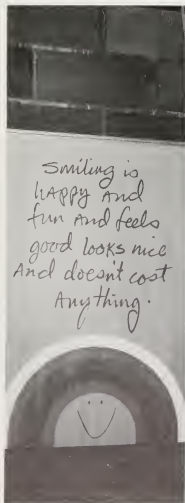 Smiling is
hAppy And
fun And feels
good looks nice
And doesn't cost
Anything.